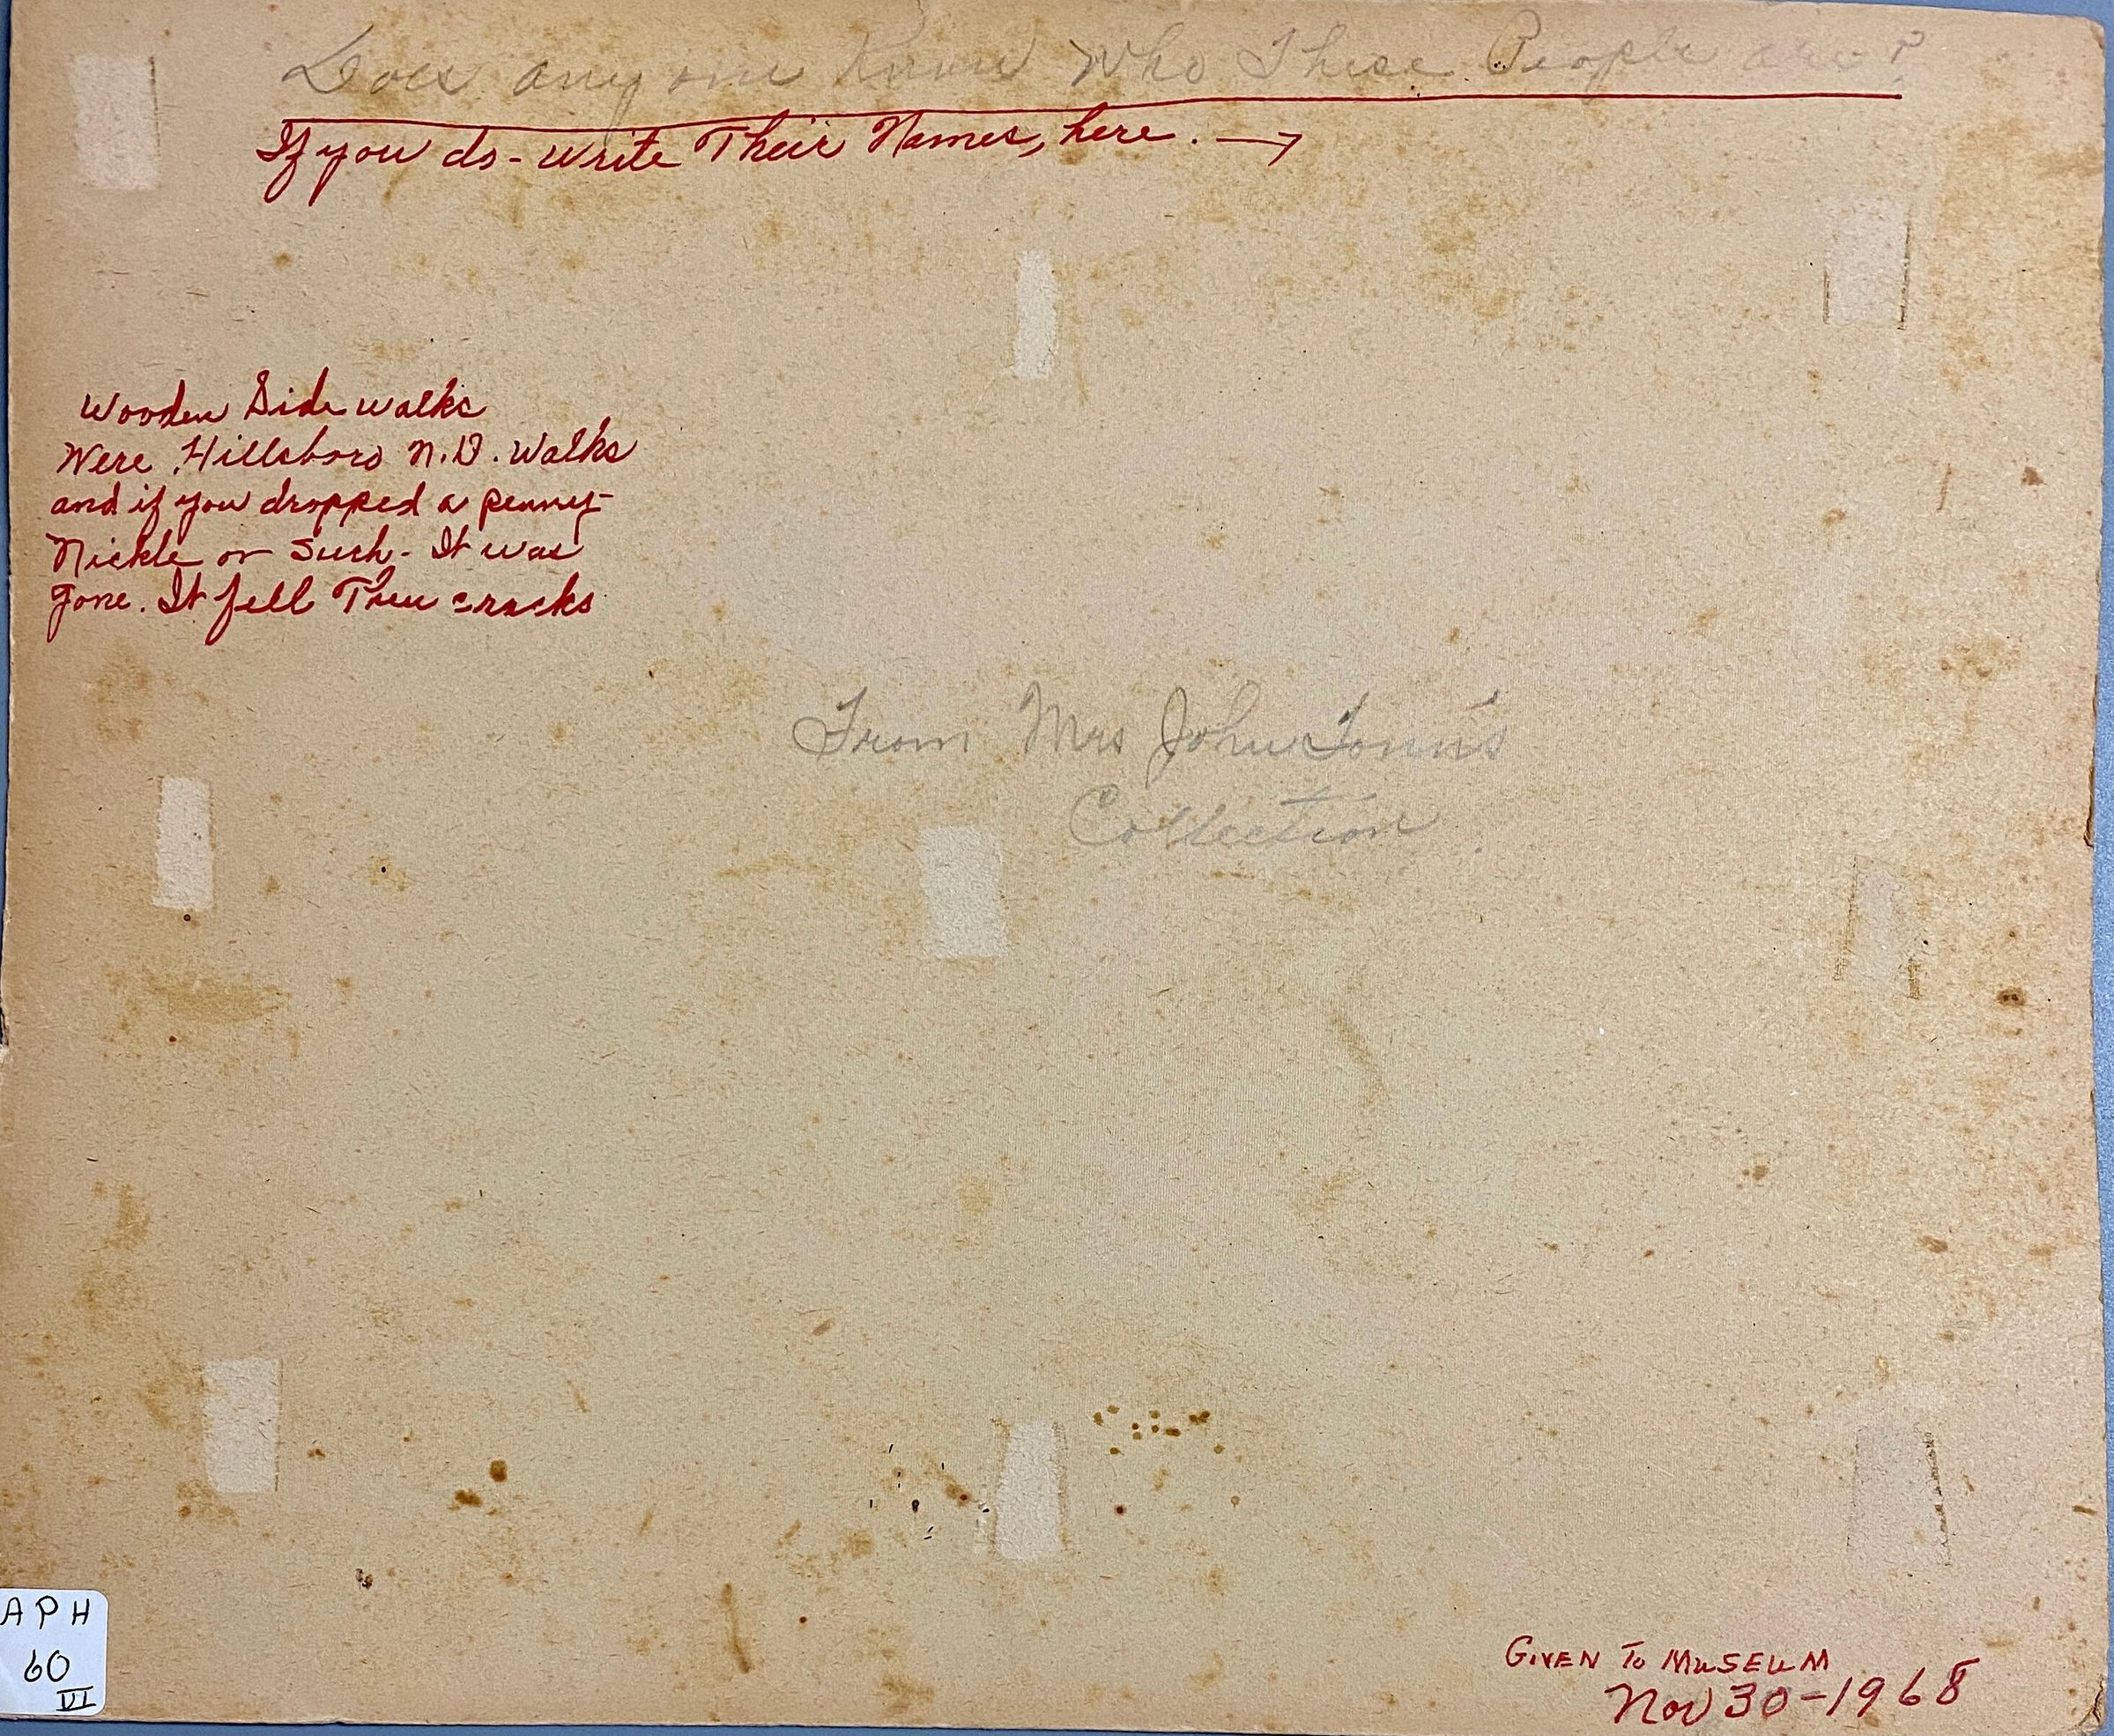 Does any one Know Who These People are?
If you do - write Their Names, here. →
Wooden Side walks
Were Hillsboro N.D. Walks
and if you dropped a penny-
Nickle or Such - It was
gone. It fell Thru cracks
From Mrs John
Collection.
APH
60
VI
GIVEN To MUSEUM
Nov 30-1968